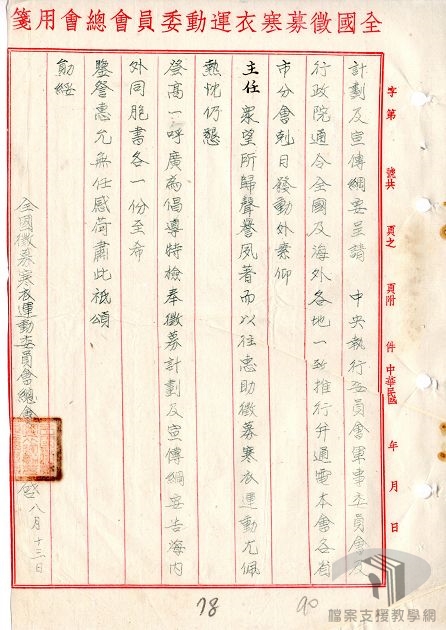 全國徵募寒衣運動委員會總會用箋
字第　號共　頁之　頁附　件 中華民國　年　月　日
計劃及宣傳綱要呈請　中央執行委員會軍事委員會及
行政院通令全國及海外各地一致推行并通電本會各省
市分會剋日發動外素仰
主任衆望所歸聲譽夙著而以往惠助徵募寒衣運動尤佩
熱忱仍懇
登高一呼廣為倡導特檢奉徵募計劃及宣傳綱要告海內
外同胞書各一份至希
鑒詧惠允無任感荷肅此祗頌
勛綏
全國徵募寒衣運動委員會總會 啓 八月十三日
78
90
檔案支援教學網